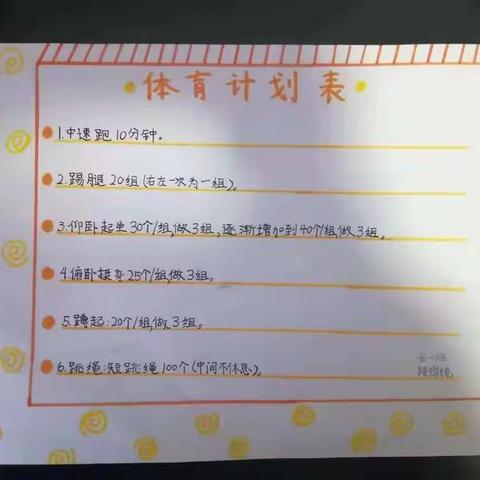 体育计划表
1.中速跑10分钟。
2.踢腿20组(右左一次为一组)。
3.仰卧起坐30个/组,做3组,逐渐增加到40个/组做3组。
4.俯卧挺身25个/组,做3组。
5.蹲起:20个/组,做3组。
6.跳绳:短跳绳100个(中间不休息)。